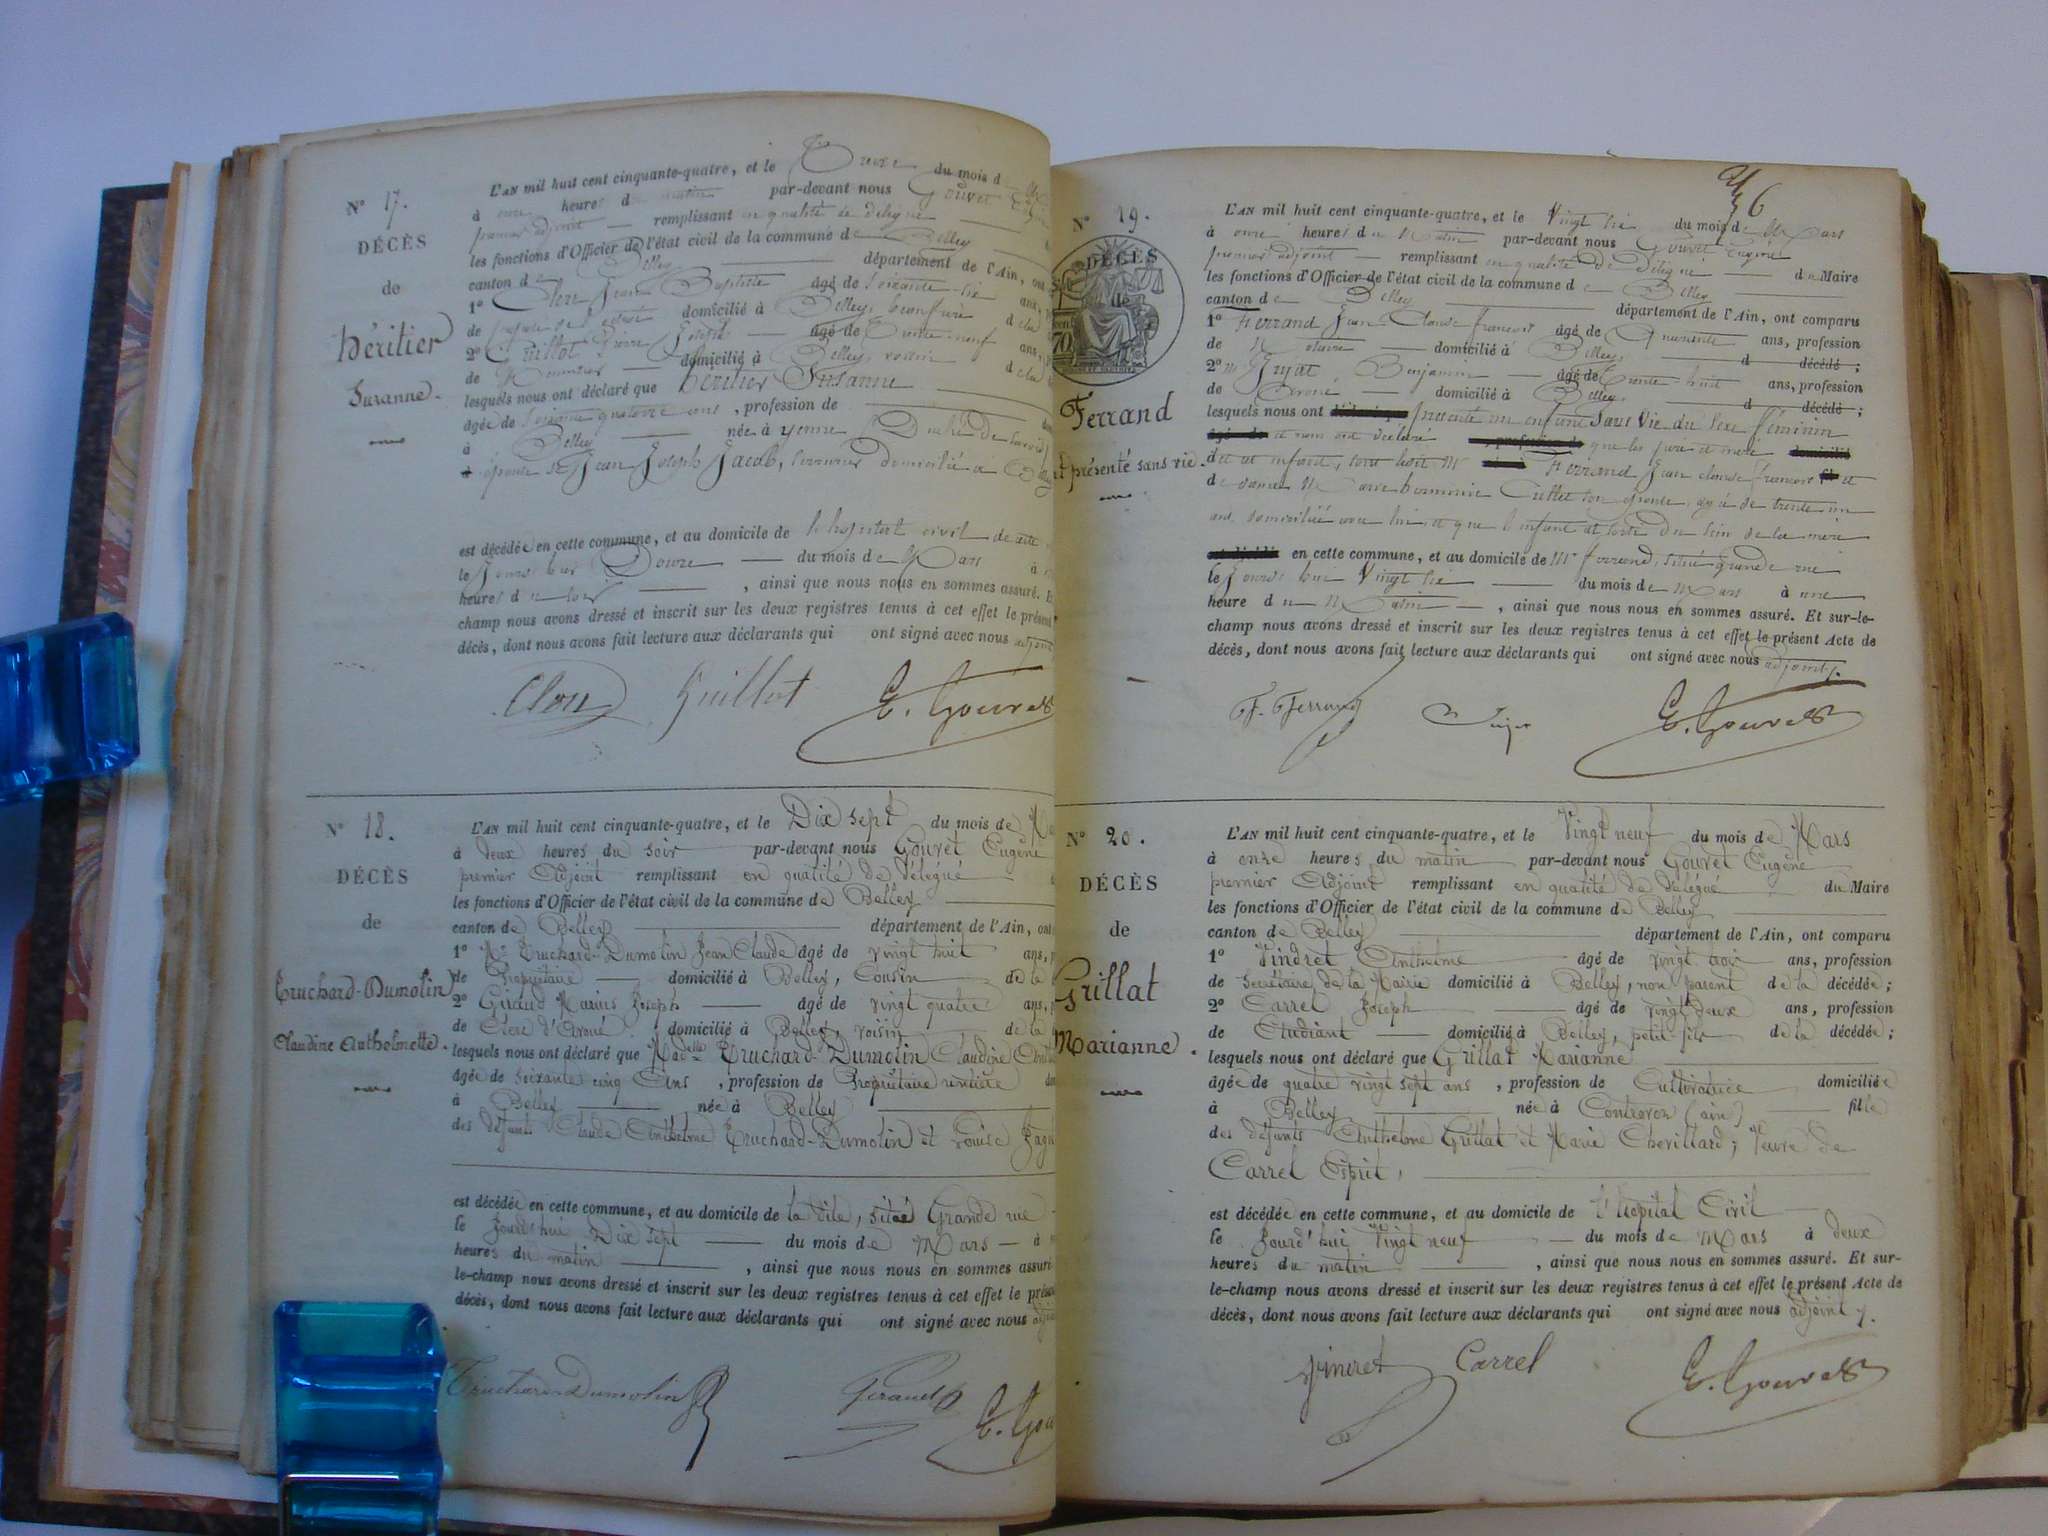 N° 17.
DÉCÈS
de
Héritier
Suzanne.
L'AN mil huit cent cinquante-quatre, et le Treize du mois d
à onze heures du matin par-devant nous Gouvet Eugène
premier adjoint remplissant en qualité de délégué
les fonctions d'Officier de l'état civil de la commune de Belley
canton de Belley département de l'Ain, ont
1° Jean Baptiste âgé de soixante six ans,
de domicilié à Belley, de la
2° Guillot Joseph âgé de trente neuf ans,
de domicilié à Belley, voisin de la
lesquels nous ont déclaré que héritier Suzanne
âgée de soixante quatorze ans, profession de
à Belley née à yenne (Duché de Savoie)
épouse Sr Jean Joseph Jacob, domicilié à Belley
est décédée en cette commune, et au domicile de l'hopital civil de cette
le Jourd'hui Douze du mois de Mars à
heures du soir, ainsi que nous nous en sommes assuré. E
champ nous avons dressé et inscrit sur les deux registres tenus à cet effet le présent
décès, dont nous avons fait lecture aux déclarants qui ont signé avec nous adjoint
Guillot E. Gouvet
N° 18.
DÉCÈS
de
Truchard-Dumolin
Claudine Anthelmette.
L'AN mil huit cent cinquante-quatre, et le Dix sept du mois de Ma
à deux heures du soir par-devant nous Gouvet Eugène
premier Adjoint remplissant en qualité de Délégué
les fonctions d'Officier de l'état civil de la commune de Belley
canton de Belley département de l'Ain, ont
1° Mr Truchard-Dumolin Jean Claude âgé de vingt huit ans, p
de Propriétaire domicilié à Belley, Cousin de la
2° Giraud Marius Joseph âgé de vingt quatre ans, p
de Clerc d'Avoué domicilié à Belley, voisin de la
lesquels nous ont déclaré que Madelle Truchard-Dumolin Claudine
âgée de soixante cinq Ans, profession de Propriétaire rentière do
à Belley née à Belley
des défunts Claude Anthelme Truchard-Dumolin et Louise
est décédée en cette commune, et au domicile de la dite, sitée Grande rue
le Jourd'hui Dix sept du mois de Mars à
heures du matin, ainsi que nous nous en sommes assuré
le-champ nous avons dressé et inscrit sur les deux registres tenus à cet effet le présen
décès, dont nous avons fait lecture aux déclarants qui ont signé avec nous adjoi
Truchard Dumolin Giraud E. Gou
6
N° 19.
DÉCÈS
de
70
Ferrand
présenté sans vie.
L'AN mil huit cent cinquante-quatre, et le Vingt six du mois de Mars
à onze heures du Matin par-devant nous Gouvet Eugène
premier adjoint remplissant en qualité de Délégué du Maire
les fonctions d'Officier de l'état civil de la commune de Belley
canton de Belley département de l'Ain, ont comparu
1° Ferrand Jean Claude françois âgé de Quarante ans, profession
de Notaire domicilié à Belley, d décédé;
2° Mr Benjamin âgé de Trente huit ans, profession
de Avoué domicilié à Belley, d décédé;
lesquels nous ont présenté un enfant Sans Vie du Sexe féminin
et nous ont déclaré que les père et mère
du dit enfant, sont Ferrand Jean claude françois et
de dame son épouse, âgée de trente un
ans, domiciliée avec lui, et que l'enfant est sorti du sein de la mère
en cette commune, et au domicile de Mr ferrand, située grande rue
le Jourd'hui Vingt six du mois de Mars à une
heure du Matin, ainsi que nous nous en sommes assuré. Et sur-le-
champ nous avons dressé et inscrit sur les deux registres tenus à cet effet le présent Acte de
décès, dont nous avons fait lecture aux déclarants qui ont signé avec nous adjoint
F. Ferrand E. Gouvet
N° 20.
DÉCÈS
de
Grillat
Marianne.
L'AN mil huit cent cinquante-quatre, et le Vingt neuf du mois de Mars
à onze heures du matin par-devant nous Gouvet Eugène
premier Adjoint remplissant en qualité de délégué du Maire
les fonctions d'Officier de l'état civil de la commune de Belley
canton de Belley département de l'Ain, ont comparu
1° Vindret Anthelme âgé de vingt trois ans, profession
de Secrétaire de la Mairie domicilié à Belley, non parent de la décédée;
2° Carrel Joseph âgé de vingt deux ans, profession
de Etudiant domicilié à Belley, petit-fils de la décédée;
lesquels nous ont déclaré que Grillat Marianne
âgée de quatre vingt sept ans, profession de Cultivatrice domiciliée
à Belley née à Contrevoz (ain) fille
des défunts Anthelme Grillat et Marie Chevillard; Veuve de
Carrel Esprit,
est décédée en cette commune, et au domicile de l'Hopital Civil
le Jourd'hui Vingt neuf du mois de Mars à deux
heures du matin, ainsi que nous nous en sommes assuré. Et sur-
le-champ nous avons dressé et inscrit sur les deux registres tenus à cet effet le présent Acte de
décès, dont nous avons fait lecture aux déclarants qui ont signé avec nous adjoint
Vindret Carrel E. Gouvet